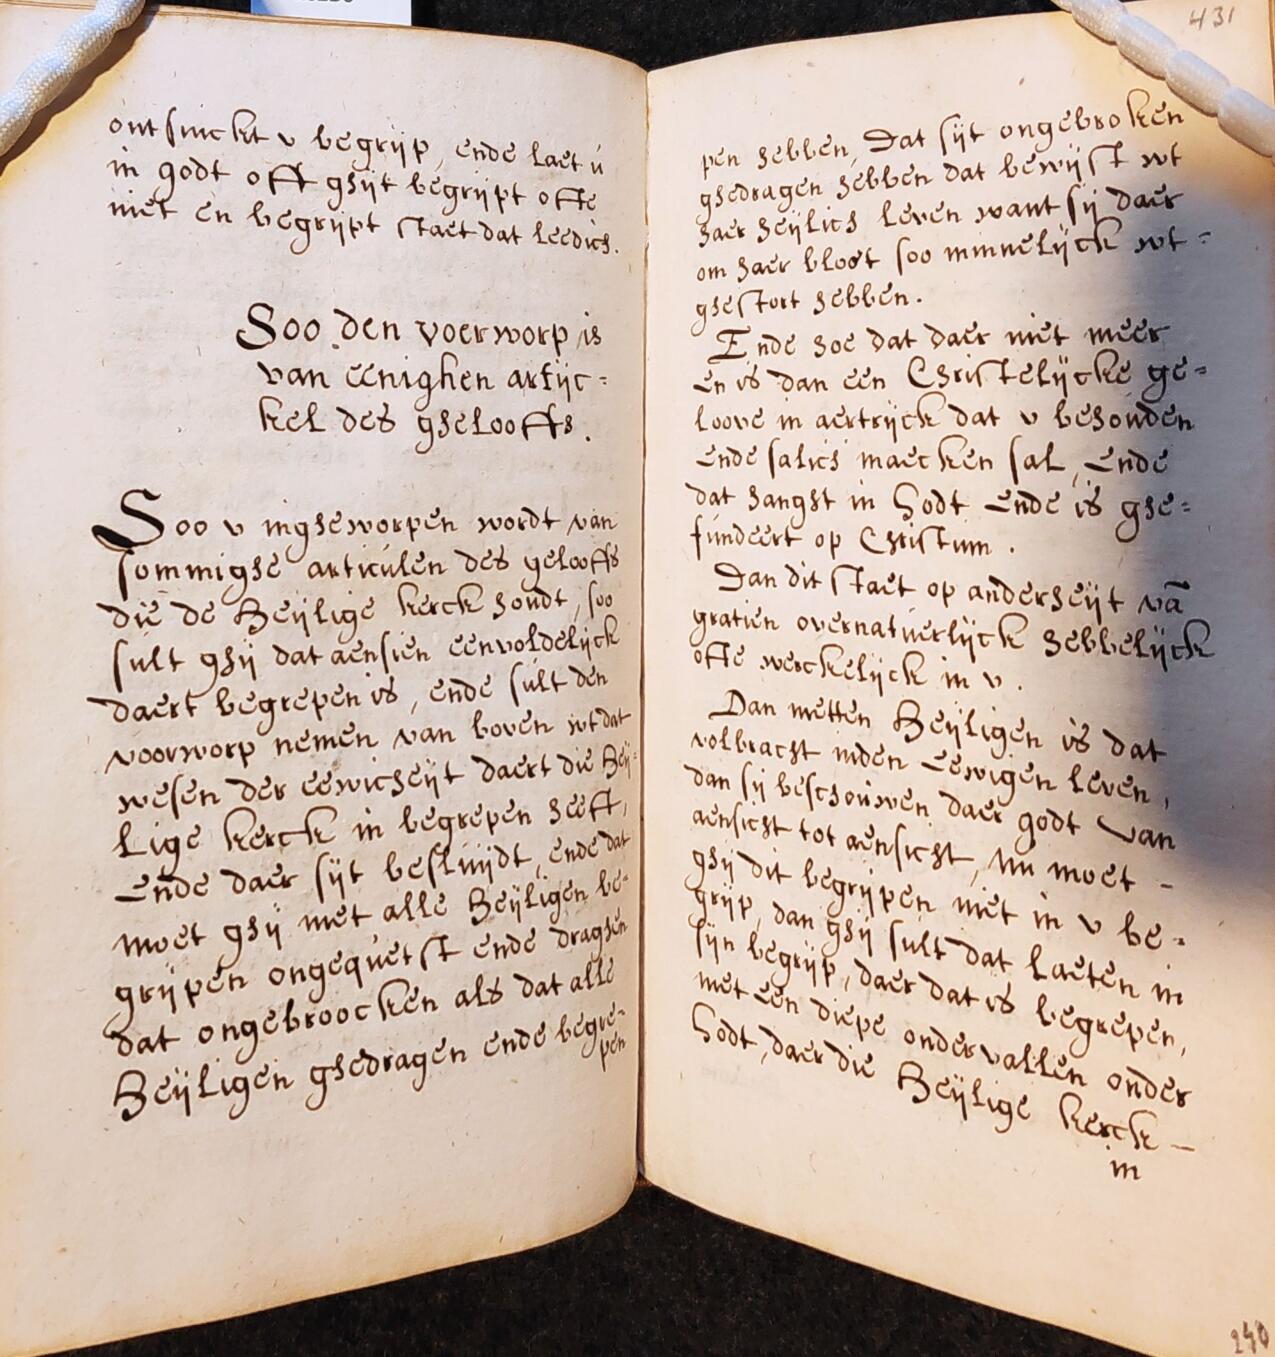 ontsinckt v begrijp, ende laet ú
in godt oft ghijt begrijpt ofte
niet en begrijpt staet dat leedich.
Soo den voerworp is
van eenighen artijc=
kel des gheloofts.
Soo v ingheworpen wordt van
sommighe articúlen des geloofts
die de Heijlige kerck houdt, soo
sult ghij dat aensien eenvoldelijck
daert begrepen is, ende súlt den
voorworp nemen van boven wt dat
wesen der eewicheijt daert die Heij=
lige kerck in begrepen heeft,
ende daer sijt besluijdt, ende dat
moet ghij met alle Heijligen be=
grijpen ongequetst ende draghen
dat ongebroocken als dat alle
Heijligen ghedragen ende begre=
pen
431
pen hebben, Dat sijt ongebroken
ghedragen hebben dat bewijst wt
haer heijlich leven want sij daer
om haer bloet soo minnelijck wt=
ghestort hebben.
Ende hoe dat daer niet meer
en is dan een Christelijcke ge=
loove in aertrijck dat v behouden
ende salich maecken sal, ende
dat hanght in Godt ende is ghe=
fúndeert op Christum.
Dan dit staet op anderheijt vā
gratien overnatuerlijck hebbelijck
ofte werckelijck in v.
Dan metten Heijligen is dat
volbracht inden eewigen leven,
dan sij beschouwen daer godt van
aensicht tot aensicht, Nu moet -
ghij dit begrijpen niet in v be=
grijp, dan ghij sult dat laeten in
sijn begrijp, daer dat is begrepen,
met een diepe ondervallen onder
Godt, daer die Heijlige kerck -
in
240